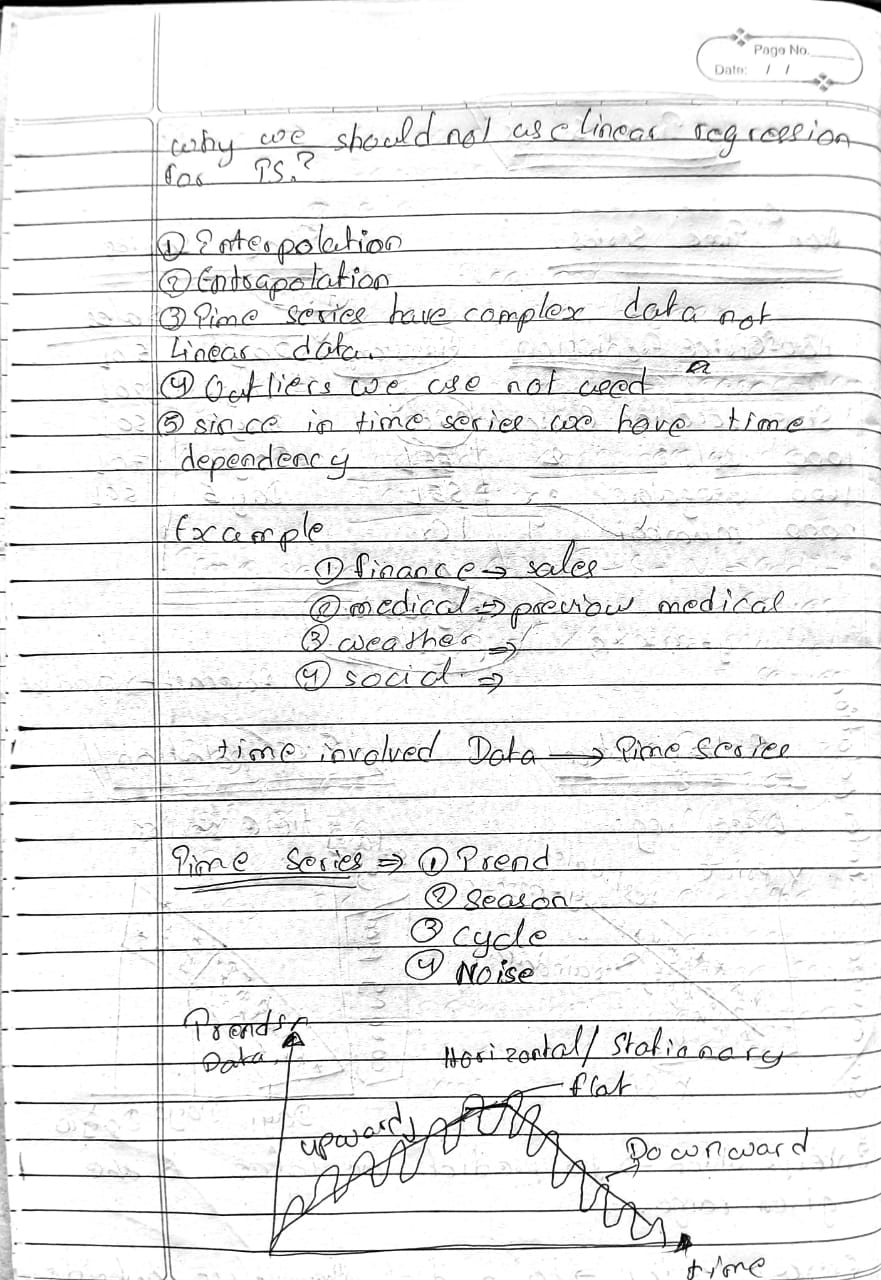 Page No.
Date: / /
why we should not use linear regression
for TS.?
① Interpolation
② Extrapolation
③ Time series have complex data not
Linear data.
④ Outliers we use not used
⑤ since in time series we have time
dependency
Example
① finance → sales
② medical ⇒ previow medical
③ weather ⇒
④ social ⇒
time involved Data → Time Series
Time Series ⇒ ① Trend
② Season
③ Cycle
④ Noise
Trends
Data
Horizontal/ Stationary
flat
upward
Downward
time